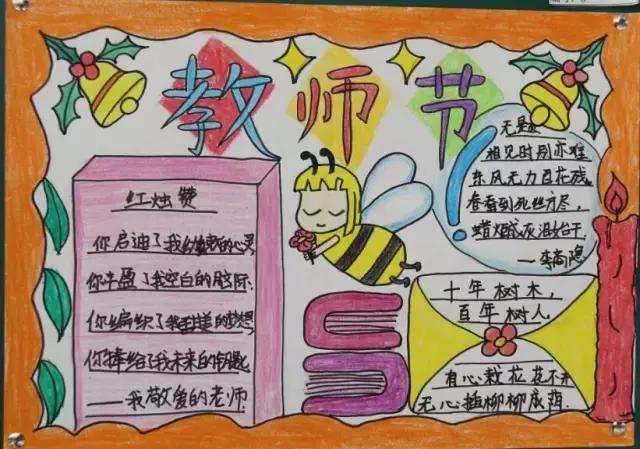 教师节
红烛赞
你启迪了我幼稚的心灵
你丰盈了我空白的脑际
你编织了我的梦想
你捧给了我未来的钥匙
——我敬爱的老师
无题
相见时别亦难
东风无力百花残
春看到死丝方尽,
蜡烛成灰泪始干.
—李商隐
十年树木,
百年树人
有心栽花花不开
无心插柳柳成荫.